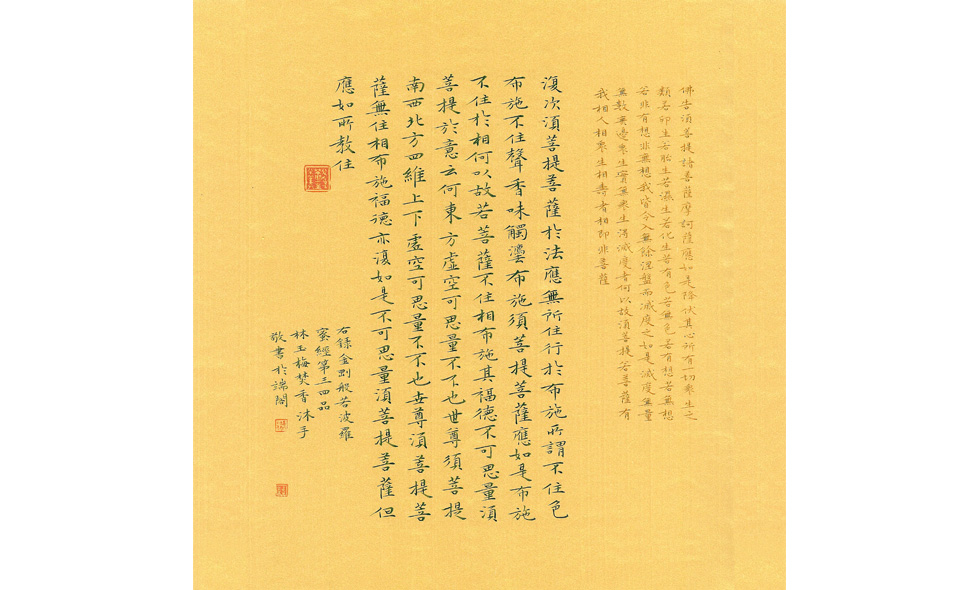 佛告須菩提諸菩薩摩訶薩應如是降伏其心所有一切衆生之
類若卵生若胎生若濕生若化生若有色若無色若有想若無想
若非有想非無想我皆令入無餘涅盤而滅度之如是滅度無量
無數無邊衆生實無衆生得滅度者何以故須菩提若菩薩有
我相人相衆生相壽者相即非菩薩
復次須菩提菩薩於法應無所住行於布施所謂不住色
布施不住聲香味觸塵布施須菩提菩薩應如是布施
不住於相何以故若菩薩不住相布施其福德不可思量須
菩提於意云何東方虛空可思量不不也世尊須菩提
南西北方四維上下虛空可思量不不也世尊須菩提菩
薩無住相布施福德亦復如是不可思量須菩提菩薩但
應如所教住
右錄金剛般若波羅
蜜經第三四品
林玉梅焚香沐手
敬書於端閣